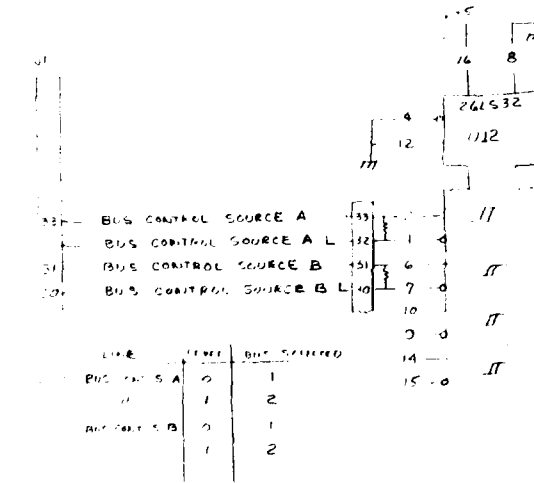 +5
J1
16 8
26LS32
4
U12
12
33 BUS CONTROL SOURCE A 33
BUS CONTROL SOURCE A L 32 1
31 BUS CONTROL SOURCE B 31 6
BUS CONTROL SOURCE B L 7
10
9
14
15
LINE LEVEL BUS SELECTED
BUS CONT S A 0 1
" 1 2
BUS CONT S B 0 1
1 2